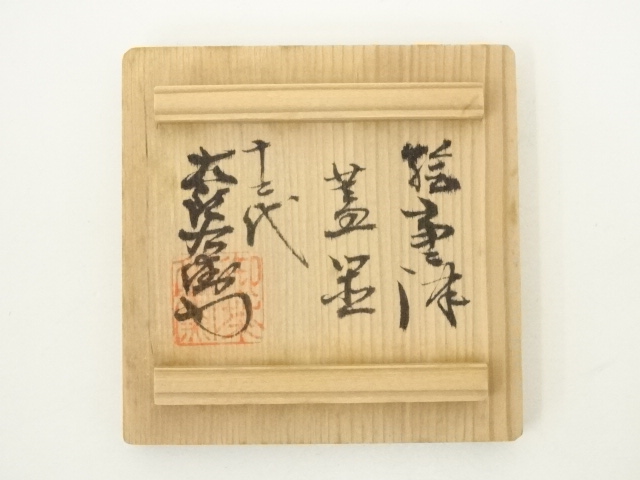 絵唐津
蓋置
十三代
太郎右衛門